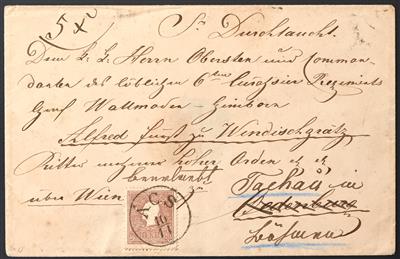 Sr Durchlaucht
Dem k. k. Herrn Obersten und Comman-
danten des löblichen 6ten Curassier Regiments
Graf Wallmoden-Gimborn
Alfred Fürst zu Windischgrätz
Ritter mehrer hoher Orden etc etc
beurlaubt
über Wien
Tachau in
Oedenburg
Böhmen